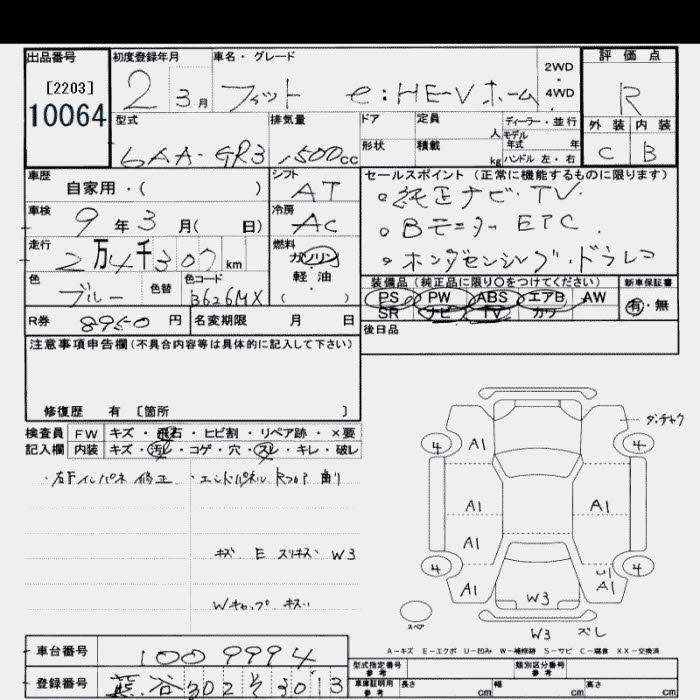 出品番号
[2203]
10064
初度登録年月
2 3月
車名・グレード
フィット e:HEVホーム
2WD
・
4WD
評価点
R
外装 内装
C B
型式
6AA-GR3
排気量
1500cc
ドア 定員 人
形状 積載 kg
ディーラー・並行
モデル年式 年
ハンドル 左・右
車歴
自家用・( )
シフト
AT
車検
9年3月( 日)
冷房
AC
走行
2万4千307km
燃料
ガソリン
軽油
( )
色
ブルー
色替
色コード
B626MX
R券 8950円
名変期限 月 日
セールスポイント(正常に機能するものに限ります)
○純正ナビ・TV
○Bモニター ETC
○ホンダセンシング・ドラレコ
装備品(純正品に限り○をつけてください)
PS PW ABS エアB AW
SR ナビ TV カワ
新車保証書
有・無
後日品
注意事項申告欄(不具合内容等は具体的に記入して下さい)
修復歴 有 〔箇所 〕
検査員 FW キズ・飛石・ヒビ割・リペア跡・×要
記入欄 内装 キズ・汚れ・コゲ・穴・スレ・キレ・破レ
・右Fインパネ修正 ・エンドパネルRフロア曲り
キズ E スリキズ W3
Wキャップ キズ
ダンチャク
4 A1 4
A1 A1
A1
4 4
A1 W3 U1 A1
スペア
W3 ズレ
A-キズ E-エクボ U-凹み W-補修跡 S-サビ C-腐食 XX-交換済
車台番号 1009994
登録番号 熊谷302 3013
型式指定番号
参考
類別区分番号
参考
車庫証明用
参考
長さ cm 幅 cm 高さ cm